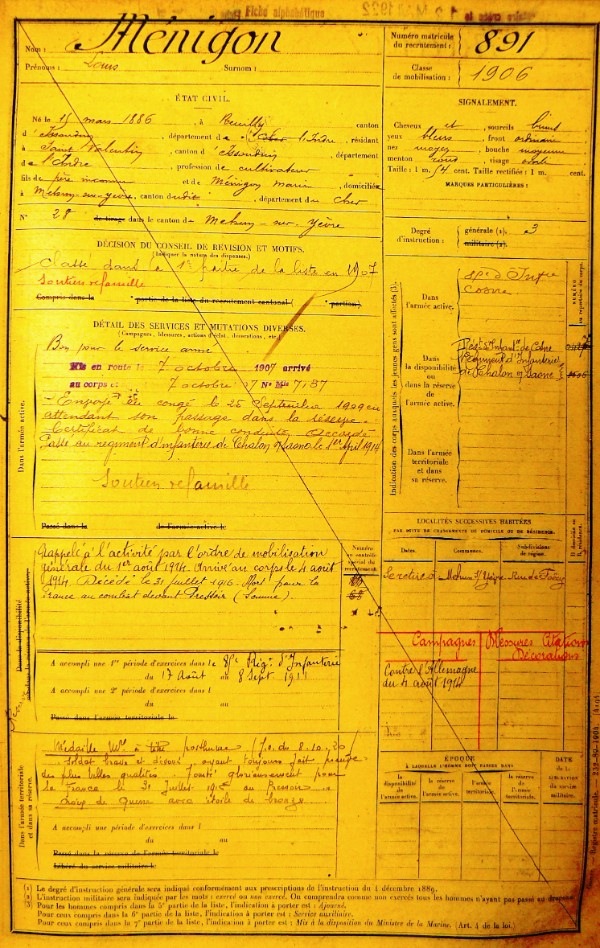 Fiche alphabétique
Nom : Ménigon
Prénoms : Louis Surnom :
Numéro matricule du recrutement : 891
Classe de mobilisation : 1906
ÉTAT CIVIL.
Né le 15 mars 1886, à Reuilly, canton
d'Issoudun, département de l'Indre, résidant
à Saint Valentin, canton d'Issoudun, département
de l'Indre, profession de cultivateur
fils de père inconnu et de Ménigon Marie, domiciliée
à Mehun-sur-Yèvre, canton dudit, département du Cher
N° 28 de tirage dans le canton de Mehun-sur-Yèvre
SIGNALEMENT.
Cheveux et sourcils
yeux bleus front ordinaire
nez moyen bouche moyenne
menton rond visage ovale
Taille : 1 m. 54 cent. Taille rectifiée : 1 m. cent.
MARQUES PARTICULIÈRES :
Degré d'instruction : générale (1). 3
militaire (2).
DÉCISION DU CONSEIL DE REVISION ET MOTIFS.
(Indiquer la nature des dispenses.)
Classé dans la 1re partie de la liste en 1907
Soutien de famille
Compris dans la partie de la liste du recrutement cantonal ( portion).
DÉTAIL DES SERVICES ET MUTATIONS DIVERSES.
(Campagnes, blessures, actions d'éclat, décorations, etc.)
Bon pour le service armé
Mis en route le 7 octobre 1907 arrivé
au corps et 7 octobre 07 N° Mle 7187
Envoyé en congé le 25 Septembre 1909 en
attendant son passage dans la réserve.
Certificat de bonne conduite Accordé
Passé au régiment d'infanterie de Chalon s/ Saône le 1er April 1914
Soutien de famille
Passé dans la de l'armée active le
Dans l'armée active.
Indication des corps auxquels les jeunes gens sont affectés
Dans l'armée active.
d'Infie
Cosne
Dans la disponibilité ou dans la réserve de l'armée active.
Régt d'Infant. de Cosne
Régiment d'Infanterie
de Chalon s/ Saône
Dans l'armée territoriale et dans sa réserve.
Rappelé à l'activité par l'ordre de mobilisation
générale du 1er août 1914. Arrivé au corps le 4 août
1914. Décédé le 31 juillet 1916. Mort pour la
France au combat devant Pressoir (Somme).
Numéro au contrôle spécial du recrutement
LOCALITÉS SUCCESSIVES HABITÉES
PAR SUITE DE CHANGEMENTS DE DOMICILE OU DE RÉSIDENCE.
Dates. Communes. Subdivisions de région.
Mehun s/ Yèvre
Campagnes Blessures Citations
Décorations
Contre l'Allemagne
du 4 août 1914
A accompli une 1re période d'exercices dans le 85e Régt d'Infanterie
du 17 Août au 8 Sept. 1911
A accompli une 2e période d'exercices dans l
du au
Passé dans l'armée territoriale le
Médaille Mre à titre posthume (J.O. du 8.10.20
soldat brave et dévoué ayant toujours fait preuve
des plus belles qualités. Tombé glorieusement pour
la France le 31 Juillet 1916 au Pressoir.
Croix de Guerre avec étoile de bronze.
A accompli une période d'exercices dans l
du au
Passé dans la réserve de l'armée territoriale le
Libéré du service militaire le
Dans l'armée territoriale et dans sa réserve.
ÉPOQUE
À LAQUELLE L'HOMME DOIT PASSER DANS
la disponibilité de l'armée active. la réserve de l'armée active. l'armée territoriale. la réserve de l'armée territoriale.
DATE de la LIBÉRATION du service militaire.
(1) Le degré d'instruction générale sera indiqué conformément aux prescriptions de l'instruction du 4 décembre 1889.
(2) L'instruction militaire sera indiquée par les mots : exercé ou non exercé. On comprendra comme non exercés tous les hommes n'ayant pas passé au drapeau.
(3) Pour les hommes compris dans la 5e partie de la liste, l'indication à porter est : Ajourné.
Pour ceux compris dans la 6e partie de la liste, l'indication à porter est : Service auxiliaire.
Pour ceux compris dans la 7e partie de la liste, l'indication à porter est : Mis à la disposition du Ministre de la Marine. (Art. 4 de la loi.)